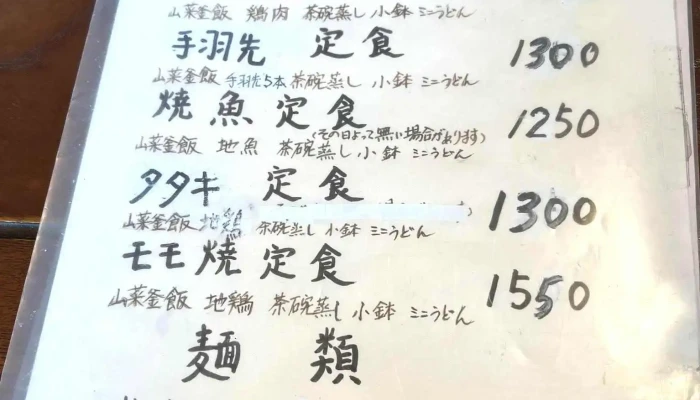 山菜釜飯 鶏肉 茶碗蒸し 小鉢 ミニうどん
手羽先 定食 1300
山菜釜飯 手羽先5本 茶碗蒸し 小鉢 ミニうどん
焼魚定食 1250
(その日よって無い場合があります)
山菜釜飯 地魚 茶碗蒸し 小鉢 ミニうどん
タタキ 定食 1300
山菜釜飯 地鶏 茶碗蒸し 小鉢 ミニうどん
モモ焼定食 1550
山菜釜飯 地鶏 茶碗蒸し 小鉢 ミニうどん
麺 類